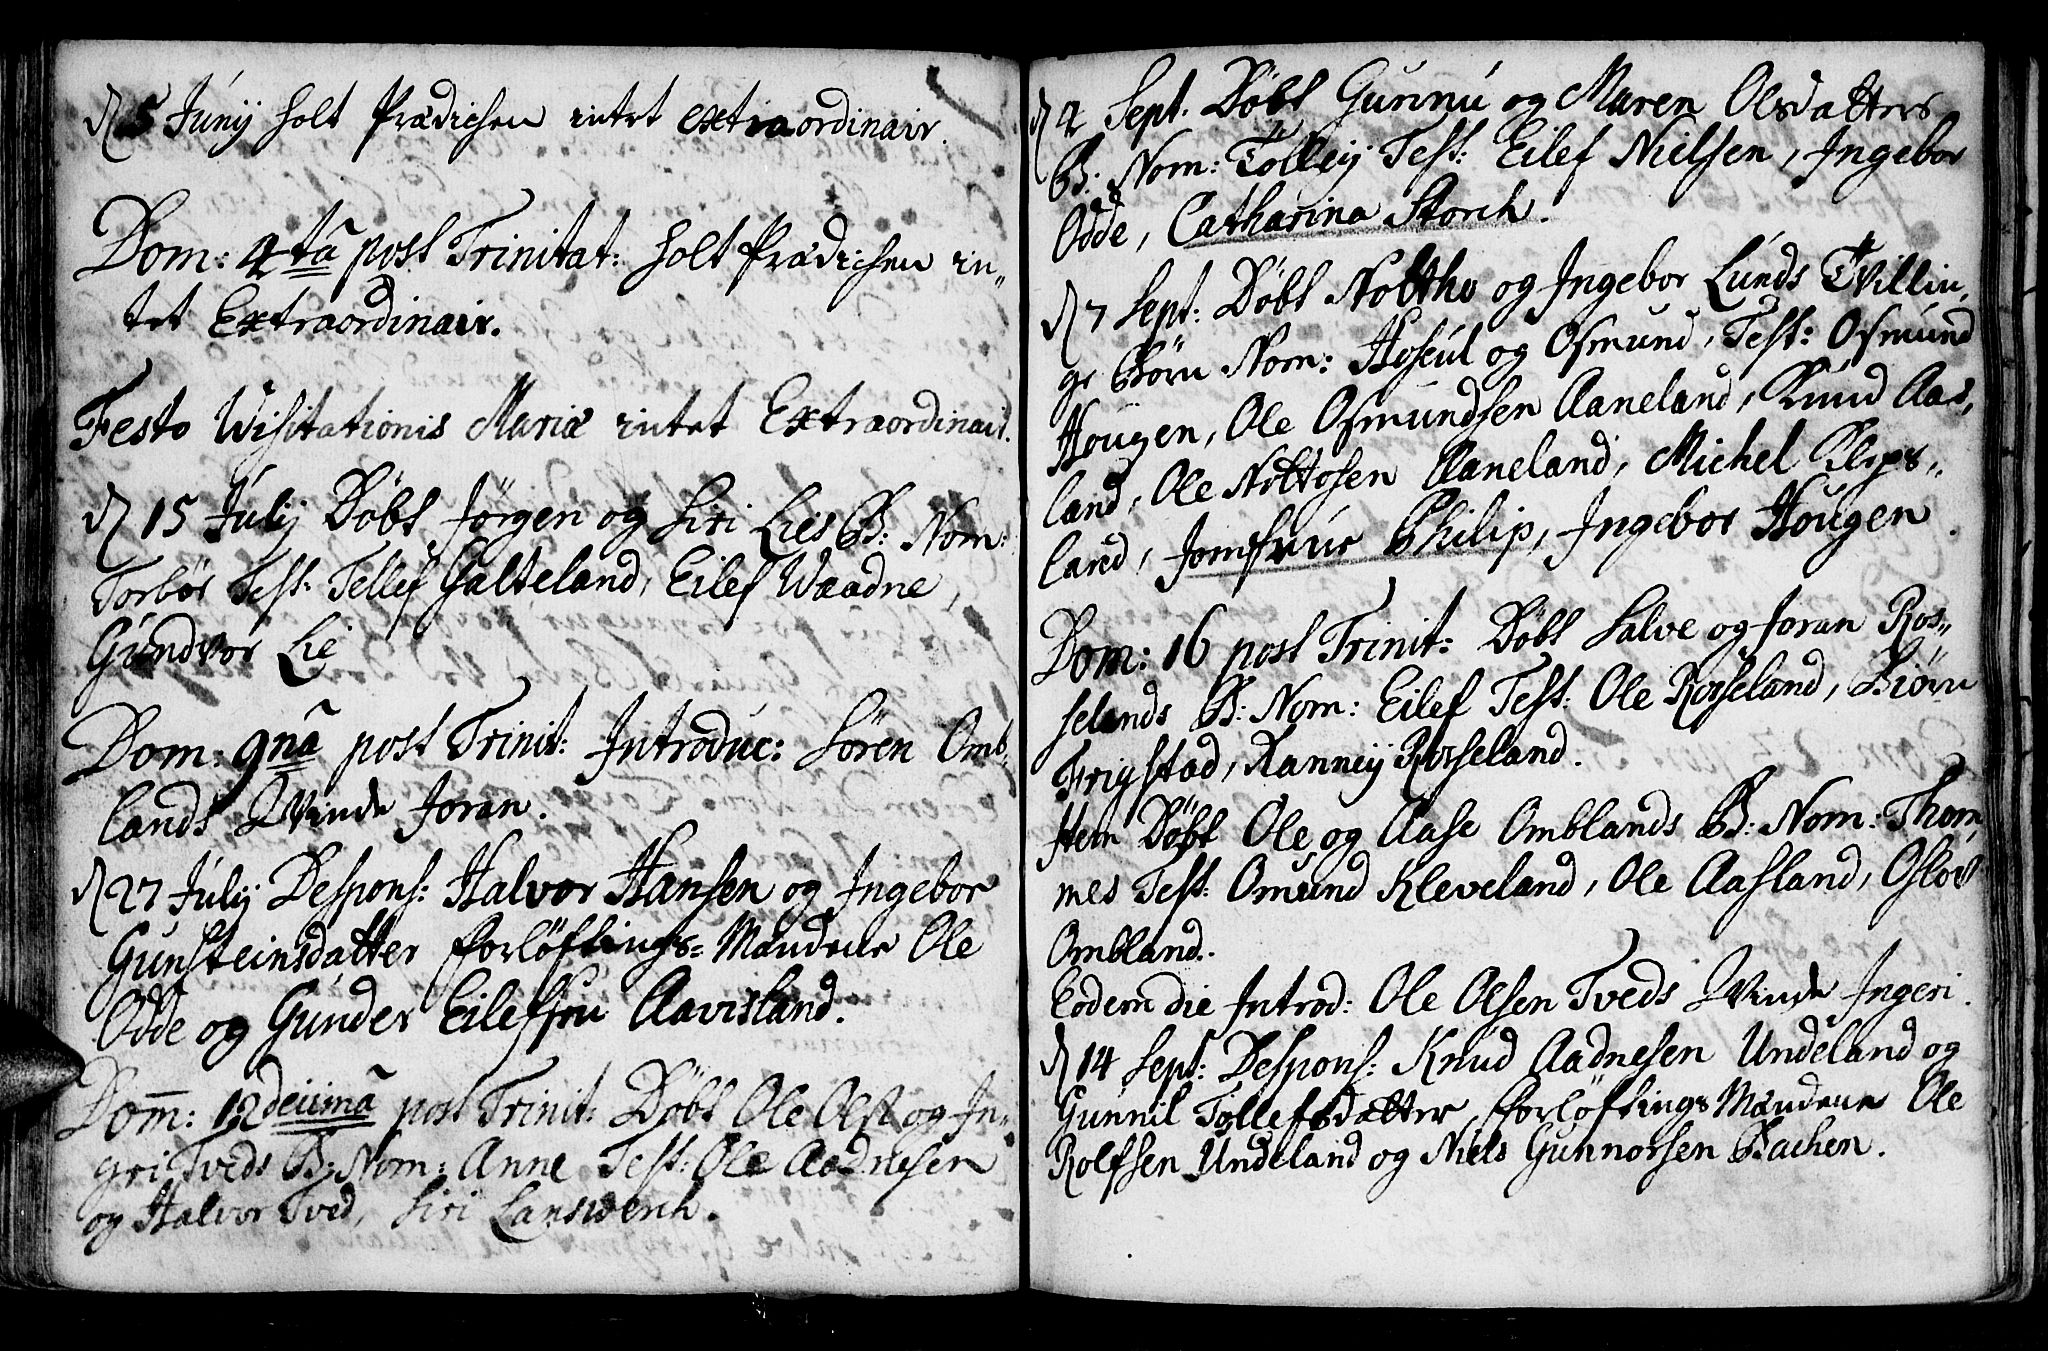 d 5 Júnÿ holt Prædichen intet extraordinair.
Dom: 4tã post Trinitat: holt Prædichen in„
tet Extraordinair.
Festo Visitationis Mariæ intet Extraordinair.
d 15 Júlÿ Döbt Jørgen og Siri Lies B: Nom:
Torbør Test: Tellef Galteland, Eilef Waadne,
Gúndvor Lie
Dom: 9nã post Trinit: Introduc: Sören Omb„
lands Qvinde Joran.
d 27 Júlÿ Despons: Halvor Hansen og Ingebor
Gunsteinsdatter Forlöftings=Mændene Ole
Odde og Gúnder Eilefsen Aavisland.
Dom̄: 12decimã post Trinit: Döbt Ole Ols: og In„
gri Tveds B: Nom: Anne Test: Ole Aadnesen
og Halvor Tved, Siri Lanswerch.
d 2 Sept. Döbt Gunnú og Maren Olsdatters
B: Nom: Tölleÿ Test: Eilef Nielsen, Ingebor
Odde, Catharina Storch.
d 7 Sept: Döbt Noltho og Ingebor Lúnds Tvillin„
ge Börn Nom: Aoscúl og Osmund, Test: Osmúnd
Hougen, Ole Osmundsen Aaneland, Knud Aas„
land, Ole Nottosen Aaneland, Michel Kleps„
land, Jomfrue Philip, Ingebor Hougen.
Dom: 16 post Trinit: Döbt Salve og Joran Ros„
selands B: Nom: Eilef Test: Ole Rosseland, Biörn
Frigstad, Ranneÿ Rosseland.
Item Döbt Ole og Aase Omblands B: Nom: Thom„
mes Test: Omund Kleveland, Ole Aasland, Oslov
Ombland.
Eodem die Introd: Ole Olsen Tveds Qvinde Ingeri.
d 14 Sept: Despons: Knúd Aadnesen Undeland og
Gunnil Tollefsdatter, Forlöftings Mændene Ole
Rolfsen Undeland og Niels Gunnorsen Bachen.